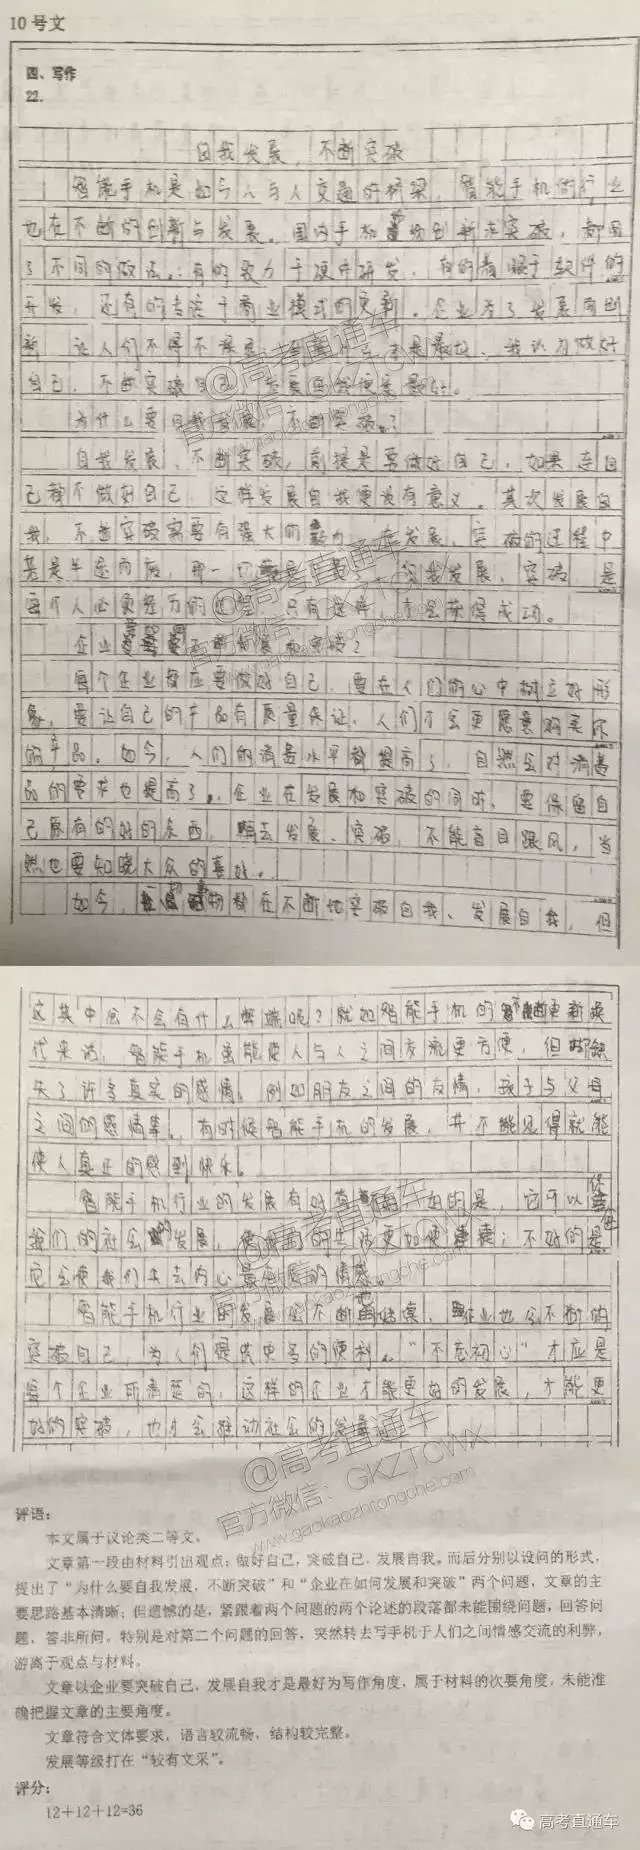 10号文
四、写作
22.
自我发展，不断突破
智能手机是如今人与人交通的桥梁，智能手机的行业
也在不断的创新与发展。国内手机创新求突破，都用
了不同的做法。有的致力于硬件研发，有的着眼于软件的
开发，还有的专注于商业模式的更新。企业为了发展而创
新，让人们不得不深思，才是最好，我认为做好
自己，不断突破自己，发展自我便是最好。
为什么要自我发展，不断突破？
自我发展、不断突破，前提是要做好自己，如果连自
己都不做好自己，这样发展自我更没有意义。其次发展自
我，不断突破需要有强大的毅力，在发展、突破的过程中
若是半途而废，那一切，自我发展、突破，是
每个人必要经历的过程，只有这样，才会获得成功。
企业不断发展和突破？
每个企业都应要做好自己，要在人们的心中树立好形
象，要让自己的产品有质量保证，人们才会更愿意购买你
的产品。如今，人们的消费水平都提高了，自然会对消费
品的要求也提高了。企业在发展和突破的同时，要保留自
己原有的好的东西，再去发展、突破，不能盲目跟风，当
然也要知晓大众的喜好。
如今，事物都在不断地突破自我、发展自我，但
这其中会不会有什么弊端呢？就如智能手机的不断更新换
代来说，智能手机虽能使人与人之间交流更方便，但却缺
失了许多真实的感情。例如朋友之间的友情，孩子与父母
之间的感情等。有时候智能手机的发展，并不能见得就能
使人真正的感到快乐。
智能手机行业的发展有好有坏，好的是，它可以使
我们的社会发展，使我们的生活更加便捷；不好的是
它会使我们失去内心最的情感。
智能手机行业的发展会不断的，企业也会不断的
突破自己，为人们提供更多的便利。“不忘初心”才应是
每个企业所清楚的，这样的企业才能更好的发展，才能更
好的突破，也才会推动社会的发展。
@高考直通车
官方微信：GKZTCWX
www.gaokaozhitongche.com
评语：
本文属于议论类二等文。
文章第一段由材料引出观点：做好自己，突破自己，发展自我。而后分别以设问的形式，
提出了“为什么要自我发展，不断突破”和“企业在如何发展和突破”两个问题，文章的主
要思路基本清晰；但遗憾的是，紧跟着两个问题的两个论述的段落都未能围绕问题，回答问
题，答非所问。特别是对第二个问题的回答，突然转去写手机于人们之间情感交流的利弊，
游离于观点与材料。
文章以企业要突破自己，发展自我才是最好为写作角度，属于材料的次要角度，未能准
确把握文章的主要角度。
文章符合文体要求，语言较流畅，结构较完整。
发展等级打在“较有文采”。
评分：
12+12+12=36
高考直通车